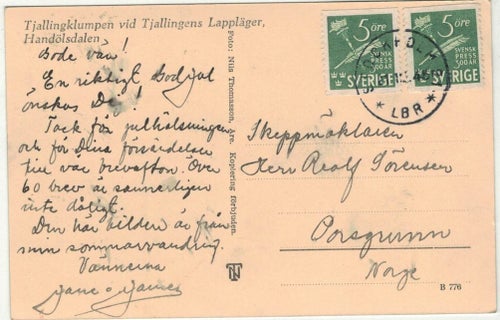 Tjallingklumpen vid Tjallingens Lappläger,
Handölsdalen
Bode vän!
En riktigt God Jul
önskas Dig!
Tack för julhälsningen
och för Dina
till vår
60 brev är sannerligen
inte dåligt.
Den här bilden är från
min sommarvandring.
Vännerna
Foto: Nils Thomasson, Åre. Kopiering förbjuden.
NT
5 ÖRE
SVENSK
PRESS
300 ÅR
SVERIGE
5 ÖRE
SVENSK
PRESS
300 ÅR
SVERIGE
STOCKHOLM
LBR
Skeppmäklaren
Herr Rolf Sörensen
Porsgrunn
Norge
B 776